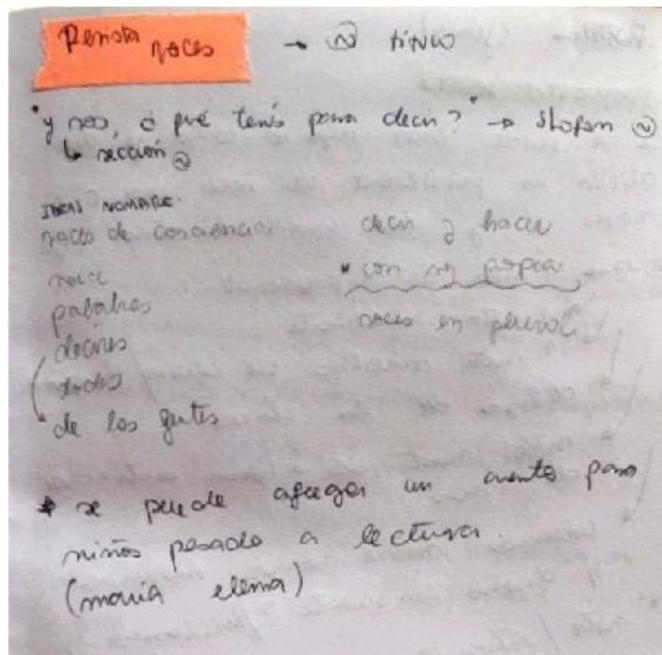 Revista voces → ② tinco
"y vos, ¿ qué tenés para decir?" → slogan ②
↳ sección ②
IDEAS NOMBRE.
voces de consciencia
voces
palabras
decires
todes
de las gentes
decir y hacer
* con voz propia
voces en plural
* se puede agregar un cuento para
niños pasado a lectura.
(maría elena)